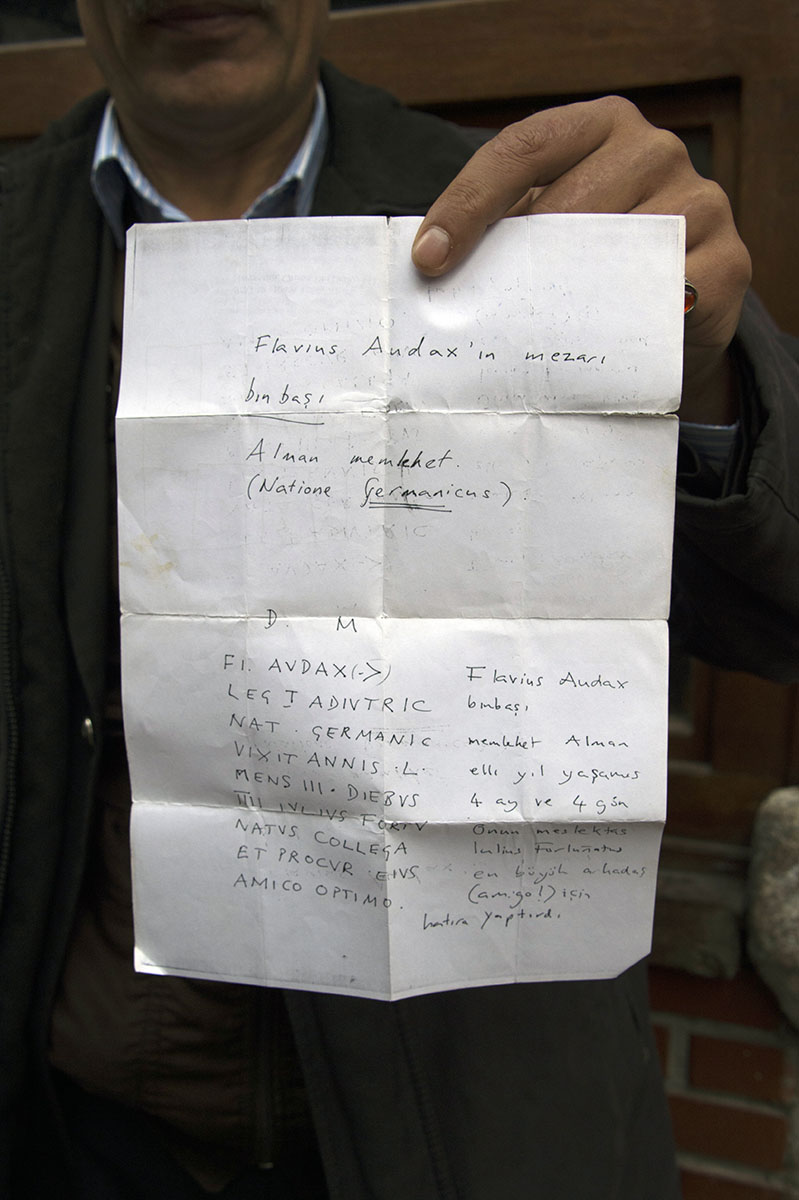 Flavius Audax'ın mezarı
binbaşı
Alman memleket.
(Natione Germanicus)
D. M
Fl. AVDAX (->)
LEG I ADIVTRIC
NAT · GERMANIC
VIXIT ANNIS · L ·
MENS III · DIEBVS
IIII IVLIVS FORTV
NATVS COLLEGA
ET PROCVR · EIVS
AMICO OPTIMO.
Flavius Audax
binbaşı
memleket Alman
elli yıl yaşamış
4 ay ve 4 gün
Onun meslektaş
Iulius Fortunatus
en büyük arkadaş
(amigo!) için
hatıra yaptırdı.